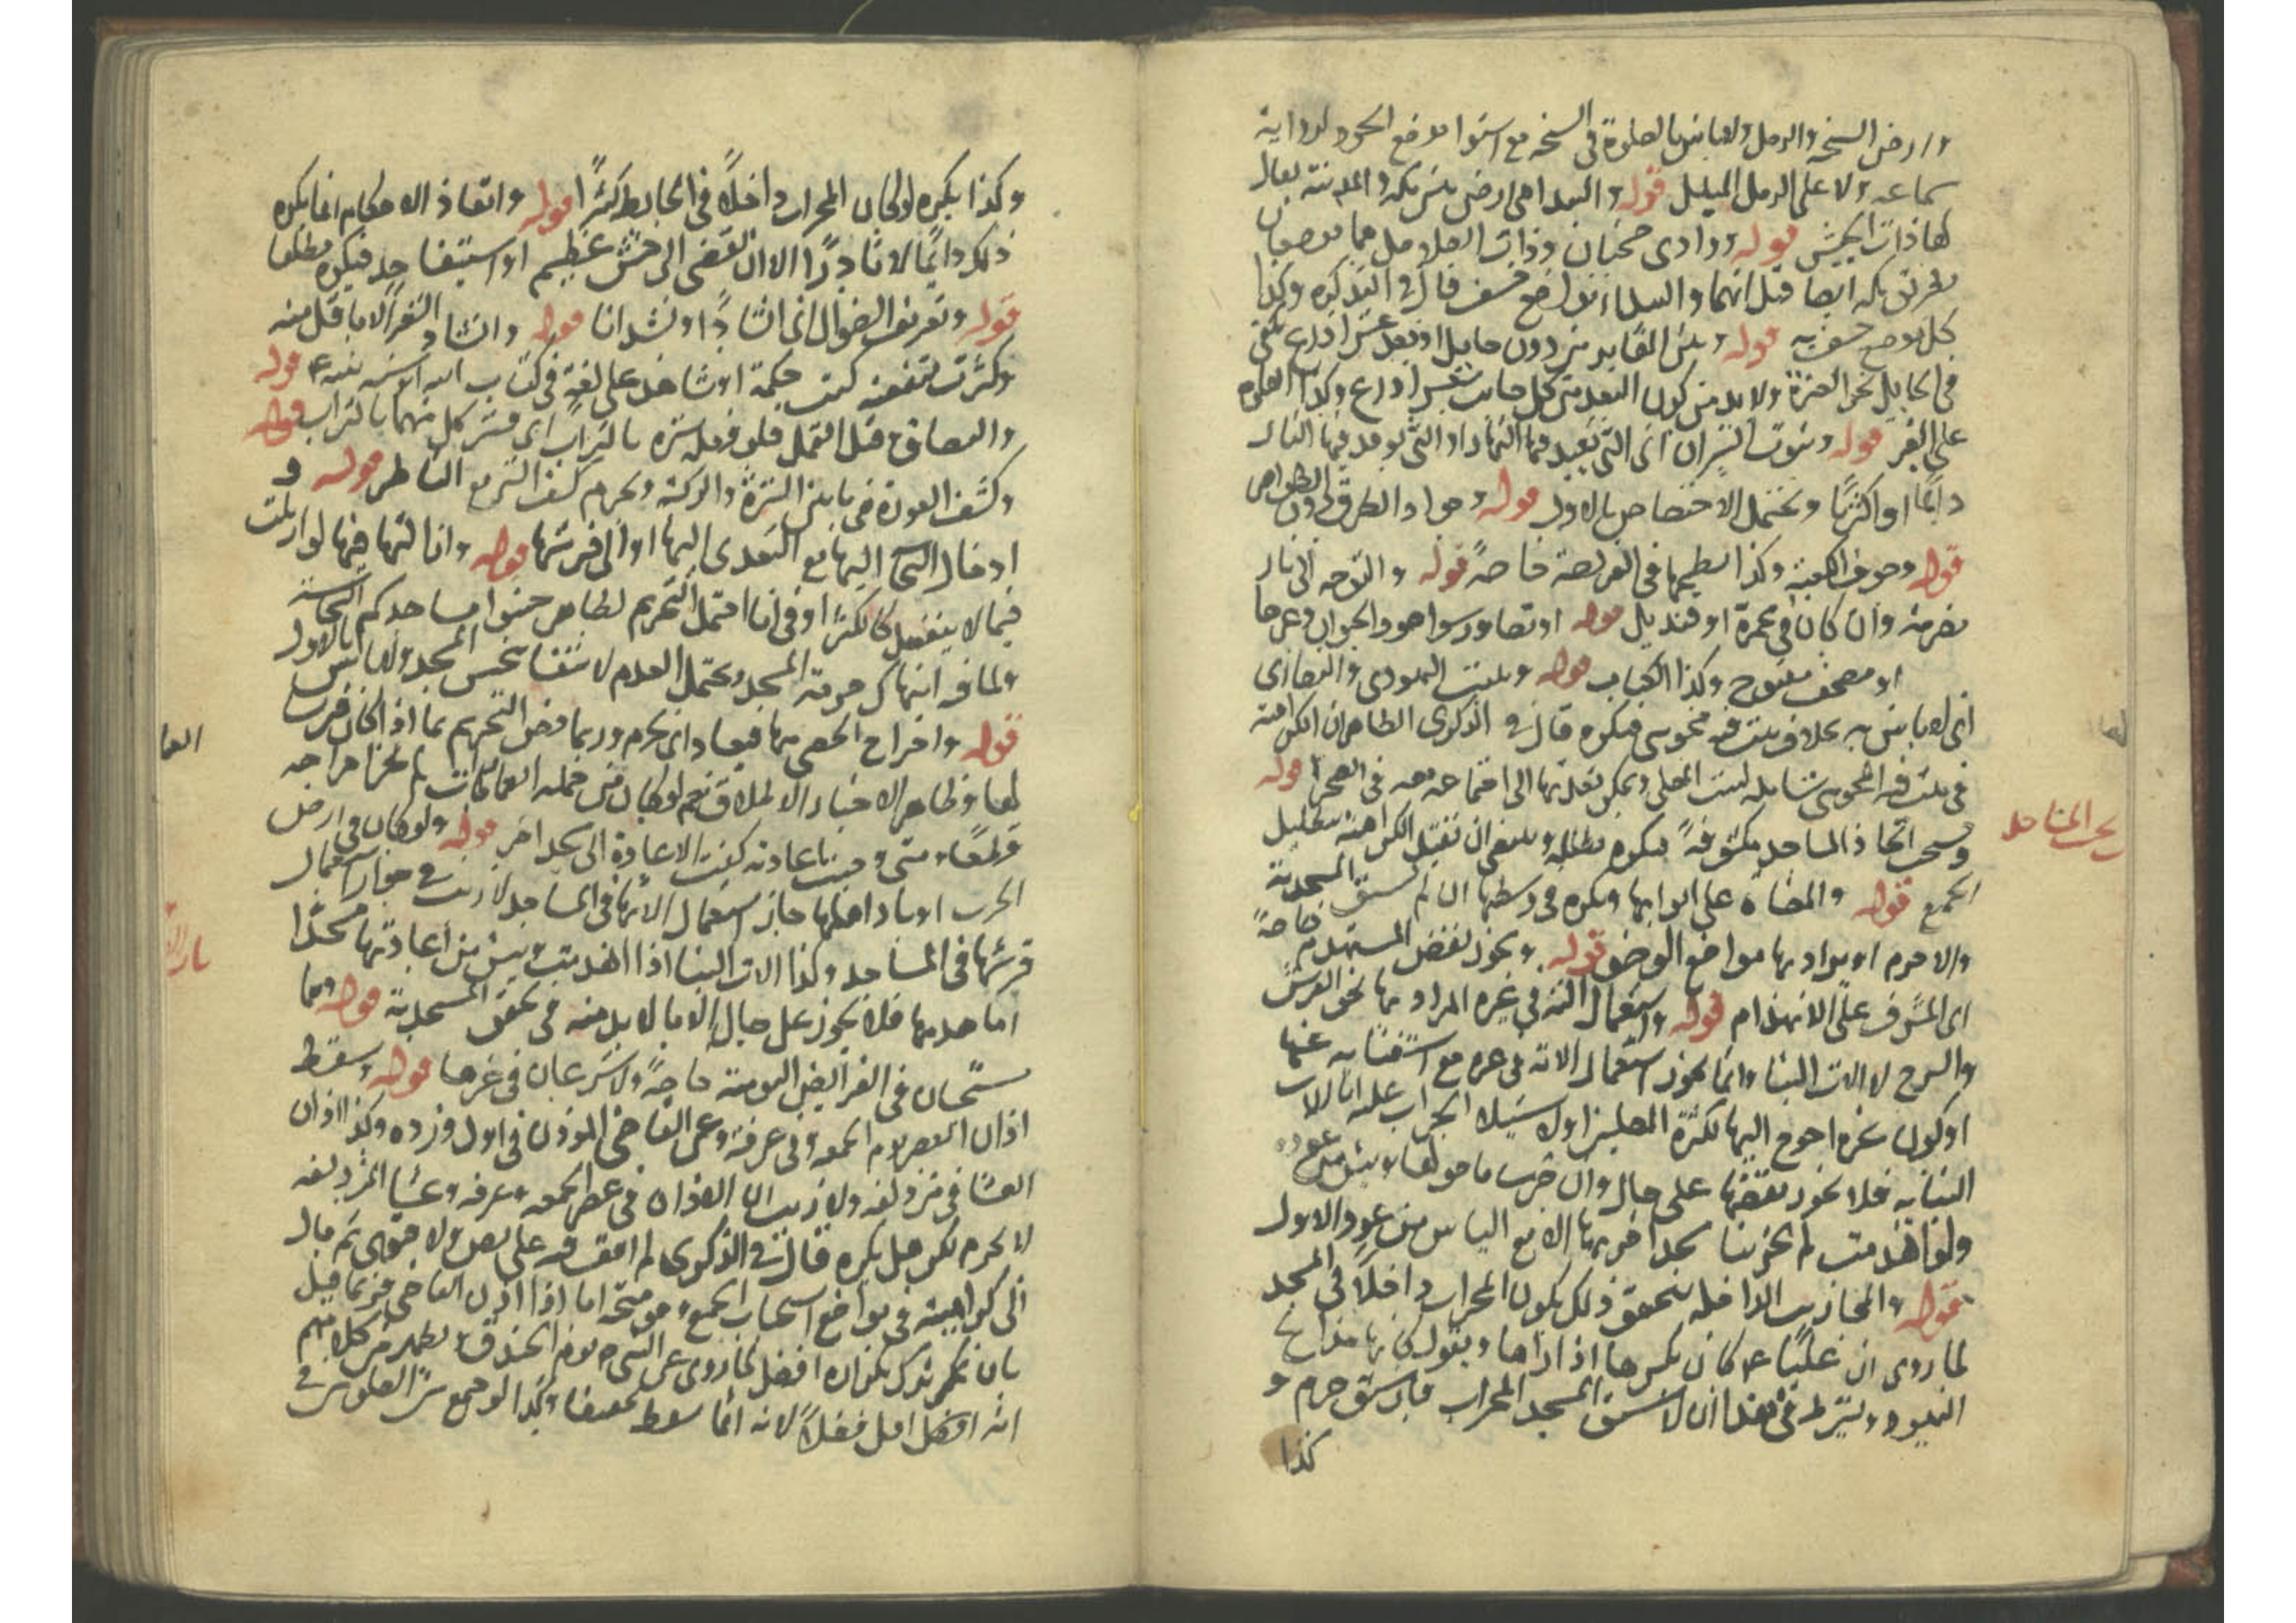 وارض السبخه والرمل ولا باس بالصلوة فى السبخه مع استواء موضع الجبهه لرواية
سماعه ولا على الرمل الملبد قوله والبيداء هى ارض بين مكه والمدينة يقال
لها ذات الجيش قوله ووادى ضجنان وذات الصلاصل هما موضعان
بطريق مكه ايضا قيل انهما والبيداء مواضع خسف قال فى التذكره وكذا
كل موضع خسف به قوله وبين المقابر من دون حايل او بعد عشر اذرع يكفى
فى الحايل نحو العنزة ولا بد من كون البعد من كل جانب عشر اذرع وكذا الصلوة
على القبر قوله وبيوت النيران اى التى تعبد فيها النار او التى يوقد فيها النار
دايما او اكثريا ويحتمل الاختصاص بالاول قوله وجواد الطرق دون الظواهر
قوله وجوف الكعبة وكذا سطحها فى الفريضة خاصة قوله والتوجه الى نار
مضرمة وان كان فى مجمرة او قنديل قوله او تصاوير سواء هو والحيوان وغيرها
او مصحف مفتوح وكذا الكتاب قوله وبيت اليهودى والنصارى
اى لا باس به بخلاف بيت فيه مجوسى فيكره قال فى الذكرى الظاهر ان الكراهة
فى بيت فيه المجوسى شاملة لبيت المصلى ويمكن تعديتها الى اجتماعه معه فى الصحراء قوله
ويستحب اتخاذ المساجد مكشوفة فيكره تظليلها وينبغى ان تقيد الكراهة بتظليل
الجميع قوله والميضاة على ابوابها ويكره فى وسطها ان لم تسبق المسجدية
والا حرم اذ يراد بها مواضع الوضوء قوله ويجوز نقض المستهدم خاصة
اى المشرف على الانهدام قوله واستعمال الته فى غيره المراد بها نحو الفرش
والسرج لا الات البناء وانما يجوز استعمال الاته فى غيره مع استغنائه عنها
او كون غيره احوج اليها لكثرة المصلين او لاستيلاء الخراب عليه اما الات
البناية فلا يجوز نقضها على حال وان خرب ما حولها ويئس من عوده
ولو انهدمت لم يجز بناء مسجد اخر بها الا مع الياس من عود الاول
قوله والمحاريب الداخله يتحقق ذلك بكون المحراب داخلا فى المسجد
لما روى ان عليا ع كان يكسرها اذا راها ويقول كانها مذابح
اليهود ويشترط فى نقضها ان لا تسبق المسجد المحراب فان سبق حرم و
كذا
بحث المساجد
وكذا يكره لو كان المحراب داخلا فى الحايط كثيرا قوله وانفاذ الاحكام انما يكره
ذلك دايما لا نادرا الا ان يفضى الى فحش عظيم او استيفاء حد فيكره مطلقا
قوله وتعريف الضوال اى انشادا ونشدانا قوله وانشاد الشعر الا ما قل منه
وكثرت منفعته كبيت حكمة او شاهد على لغة فى كتاب الله او سنة نبيه ع قوله
والبصاق وقتل القمل فلو فعل ستره بالتراب اى يستر كل منهما بالتراب قوله
وكشف العورة فى ما بين السرة والركبة ويحرم كشف الستر مع الناظر قوله و
ادخال النجاسة اليها مع التعدى اليها او الى فرشها قوله وازالتها فيها لو ازيلت
فيما لا ينفعل كالكثير او فى اناء احتمل التحريم لظاهر جنبوا مساجدكم النجاسة
ولما فيه انتهاك حرمة المسجد ويحتمل العدم لانتفاء تنجس المسجد ولا باس بالاول
قوله واخراج الحصى منها فيعاد اى يحرم وربما خص التحريم بما اذا كان فرشا
لها وظاهر الاخبار الاطلاق نعم لو كان من جملة القمامات لم يحرم اخراجه
قطعا ومتى وجبت اعادته كفت الاعادة الى مسجد اخر قوله ولو كان فى ارض
الحرب او باد اهلها جاز استعمال الاتها فى المساجد لا ريب فى جواز استعمال
فرشها فى المساجد وكذا الات البناء اذا انهدمت ويئس من اعادتها مسجدا
اما هدمها فلا يجوز على حال الا ما لا بد منه فى تحقق المسجدية قوله وهما
مستحبان فى الفرائض اليومية خاصة ولا يشرعان فى غيرها قوله ويسقط
اذان العصر يوم الجمعه وفى عرفة وعن القاضى المؤذن فى اول ورده وكذا اذان
العشاء فى مزدلفه ولا ريب ان الاذان فى عصر الجمعه وعرفه وعشاء المزدلفه
لا يحرم لكن هل يكره قال فى الذكرى لم اقف فيه على نص ولا فتوى ثم مال
الى كراهيته فى مواضع استحباب الجمع وهو متجه اما اذا اذن القاضى فربما قيل
بان ذكر تركه بكونه افضل لما روى عن النبى ص يوم الخندق ويظهر من كلامهم
انه افضل اقل فضلا لانه انما سقط تخفيفا وكذا لو جمع بين الصلوتين فى